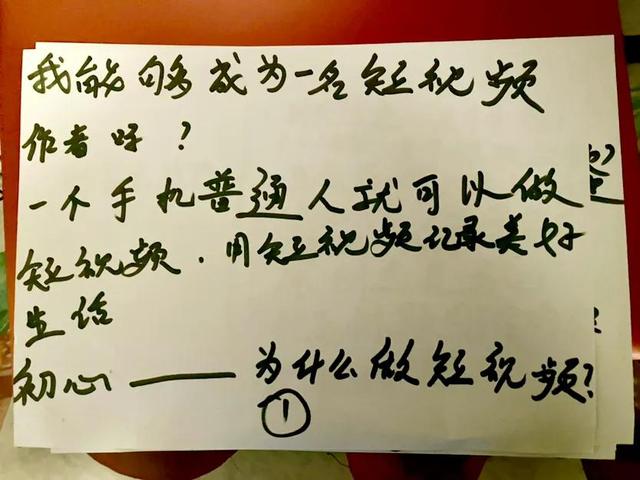 我能够成为一名短视频
作者呀？
一个手机普通人就可以做
短视频．用短视频记录美好
生活
初心——为什么做短视频？
①